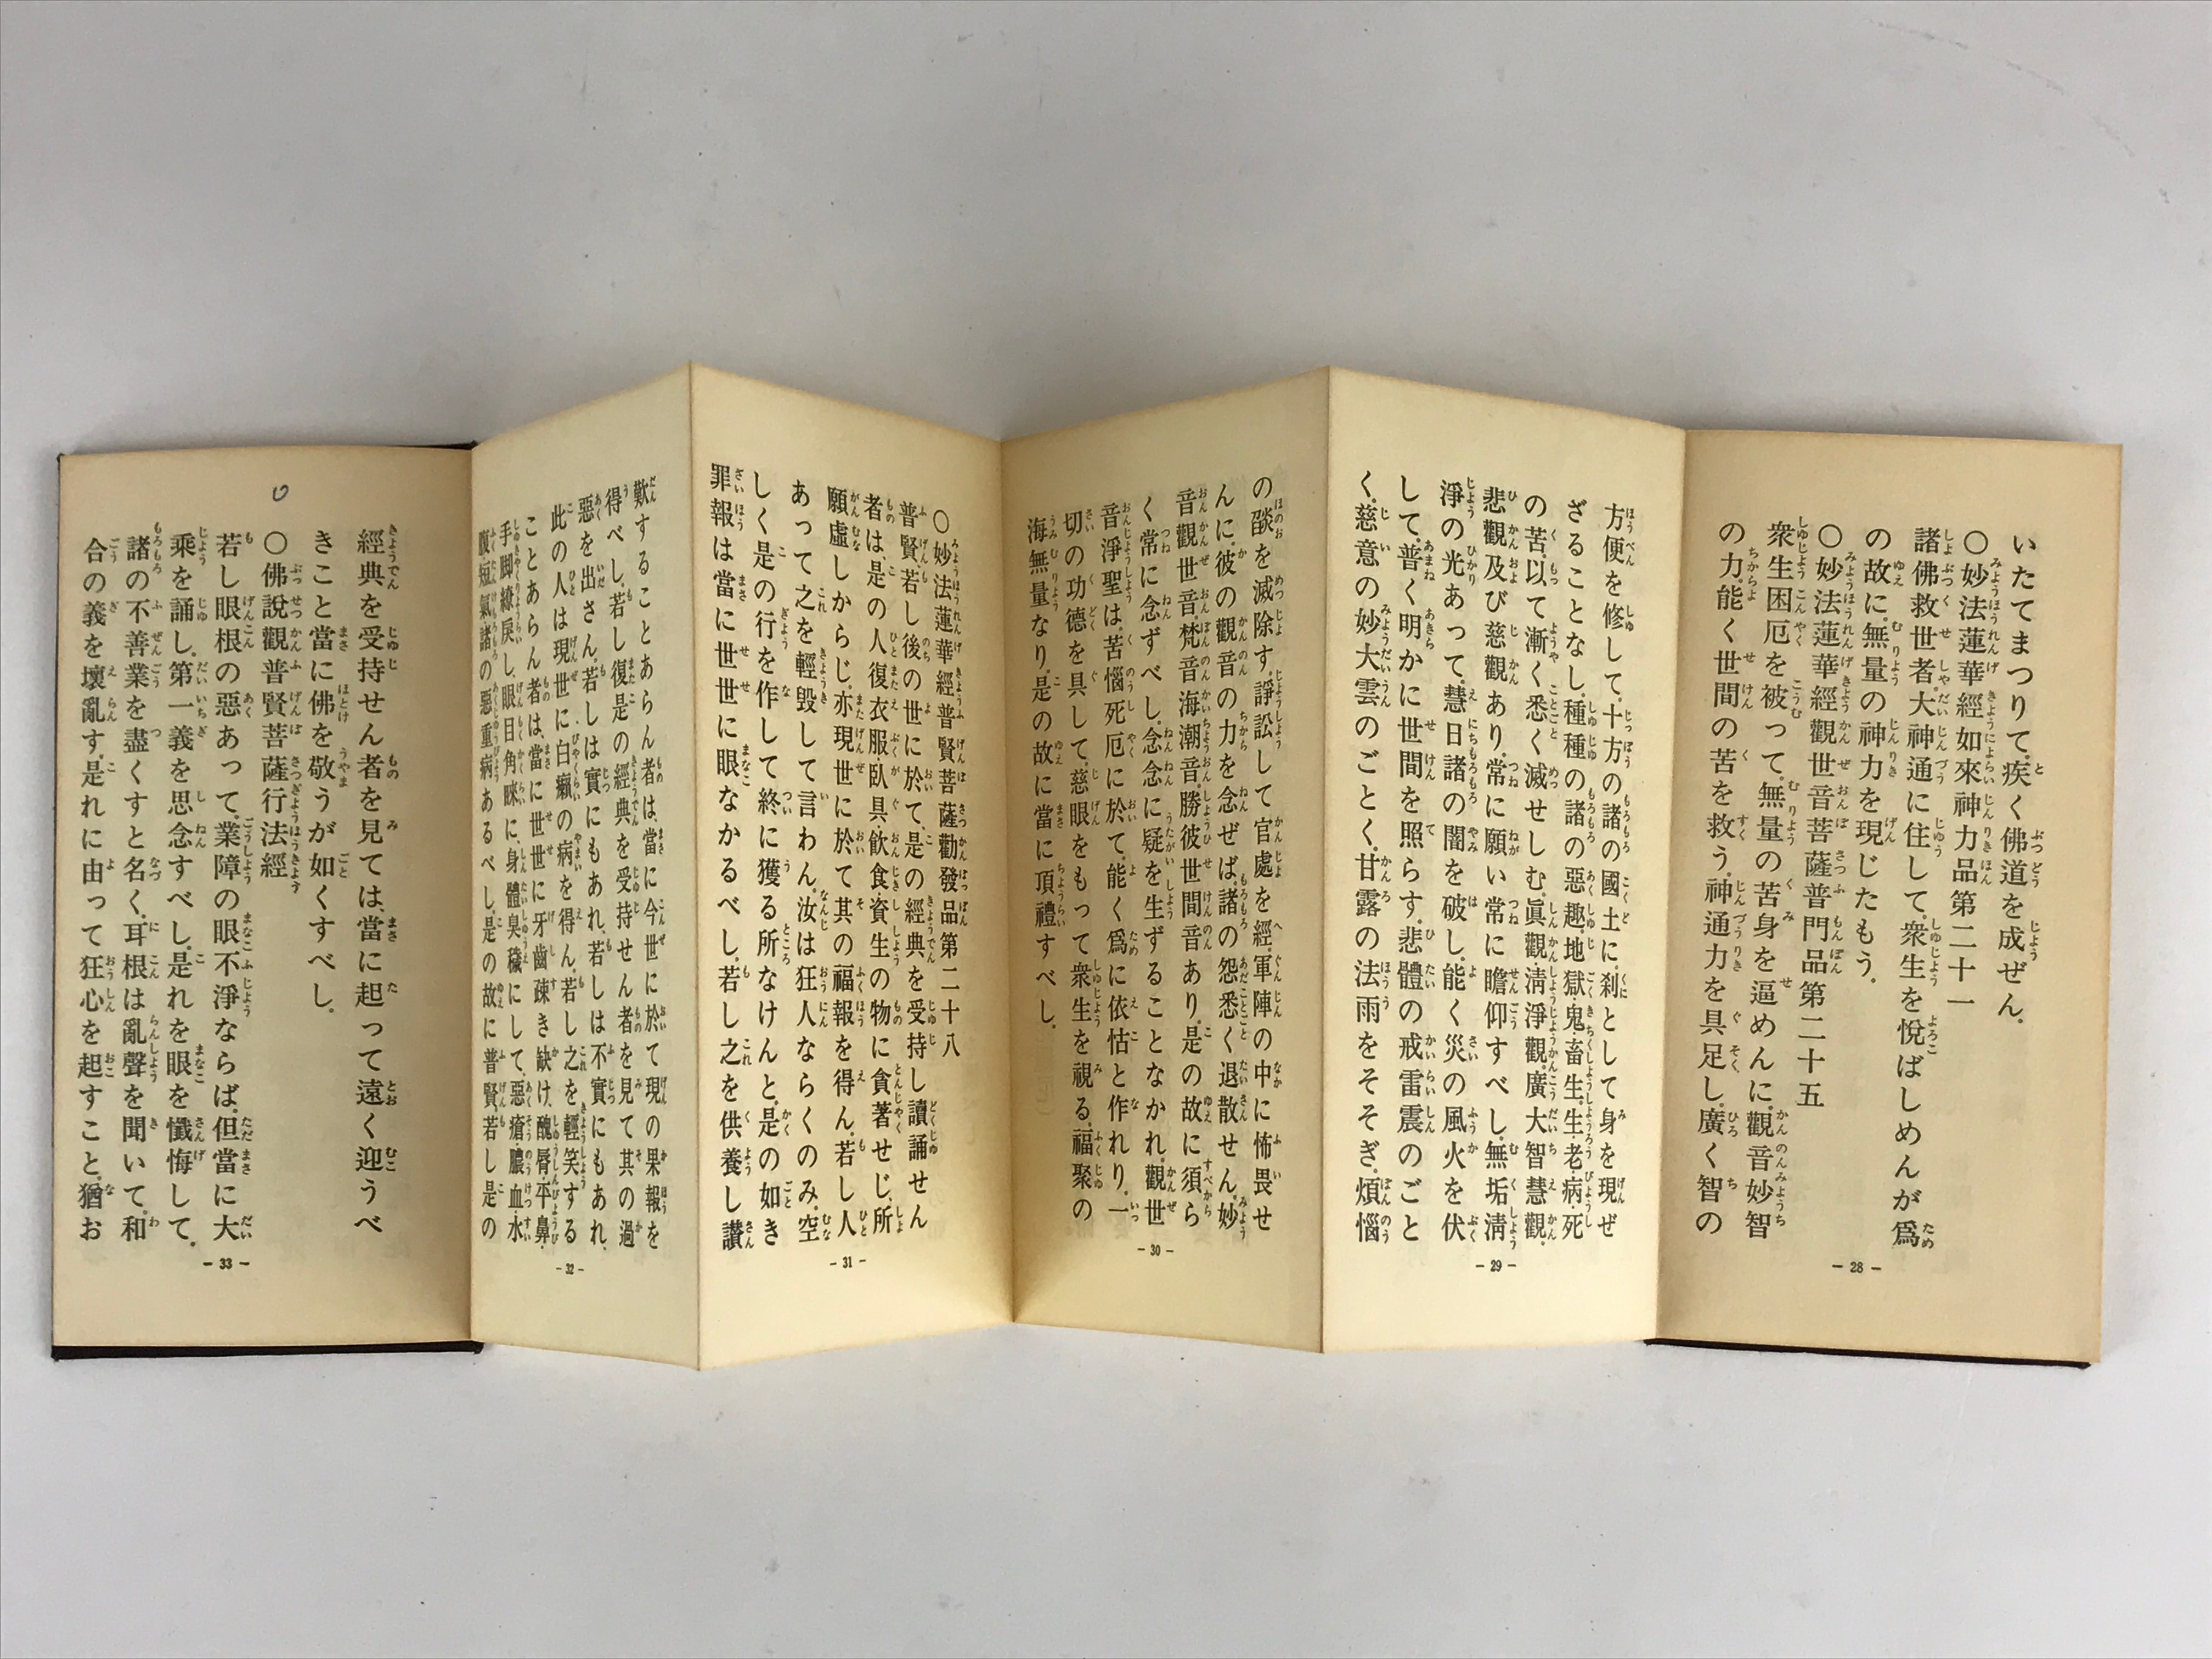 いたてまつりて、疾く佛道を成ぜん。
〇妙法蓮華經如來神力品第二十一
諸佛救世者、大神通に住して、衆生を悅ばしめんが爲
の故に、無量の神力を現じたもう。
〇妙法蓮華經觀世音菩薩普門品第二十五
衆生困厄を被って、無量の苦身を逼めんに、觀音妙智
の力、能く世間の苦を救う。神通力を具足し、廣く智の
－28－
方便を修して、十方の諸の國土に、刹として身を現ぜ
ざることなし。種種の諸の惡趣、地獄・鬼・畜生、生・老・病・死
の苦、以て漸く悉く滅せしむ。眞觀・淸淨觀、廣大智慧觀、
悲觀及び慈觀あり。常に願い常に瞻仰すべし。無垢淸
淨の光あって、慧日諸の闇を破し、能く災の風火を伏
して、普く明かに世間を照らす。悲體の戒雷震のごと
く、慈意の妙大雲のごとく、甘露の法雨をそそぎ、煩惱
－29－
の燄を滅除す。諍訟して官處を經、軍陣の中に怖畏せ
んに、彼の觀音の力を念ぜば、諸の怨悉く退散せん。妙
音觀世音、梵音海潮音、勝彼世間音あり。是の故に須ら
く常に念ずべし。念念に疑を生ずることなかれ。觀世
音淨聖は、苦惱死厄に於て、能く爲に依怙と作れり。一
切の功德を具して、慈眼をもって衆生を視る。福聚の
海無量なり。是の故に當に頂禮すべし。
－30－
〇妙法蓮華經普賢菩薩勸發品第二十八
普賢、若し後の世に於て、是の經典を受持し讀誦せん
者は、是の人復衣服・臥具・飮食・資生の物に貪著せじ、所
願虛しからじ。亦現世に於て其の福報を得ん。若し人
あって之を輕毀して言わん、汝は狂人ならくのみ、空
しく是の行を作して終に獲る所なけんと。是の如き
罪報は當に世世に眼なかるべし。若し之を供養し讃
－31－
歎することあらん者は、當に今世に於て現の果報を
得べし。若し復是の經典を受持せん者を見て其の過
惡を出さん。若しは實にもあれ、若しは不實にもあれ、
此の人は現世に白癩の病を得ん。若し之を輕笑する
ことあらん者は、當に世世に牙齒疎き缺け、醜脣・平鼻・
手脚繚戾し、眼目角睞に、身體臭穢にして、惡瘡・膿血・水
腹・短氣、諸の惡重病あるべし。是の故に普賢、若し是の
－32－
經典を受持せん者を見ては、當に起って遠く迎うべ
きこと當に佛を敬うが如くすべし。
〇佛說觀普賢菩薩行法經
若し眼根の惡あって、業障の眼不淨ならば、但當に大
乘を誦し、第一義を思念すべし。是れを眼を懺悔して、
諸の不善業を盡くすと名く。耳根は亂聲を聞いて、和
合の義を壞亂す。是れに由って狂心を起すこと、猶お
－33－